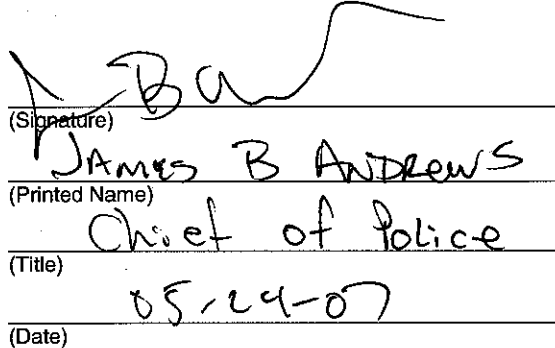 (Signature)
JAMES B ANDREWS
(Printed Name)
Chief of Police
(Title)
05-24-07
(Date)